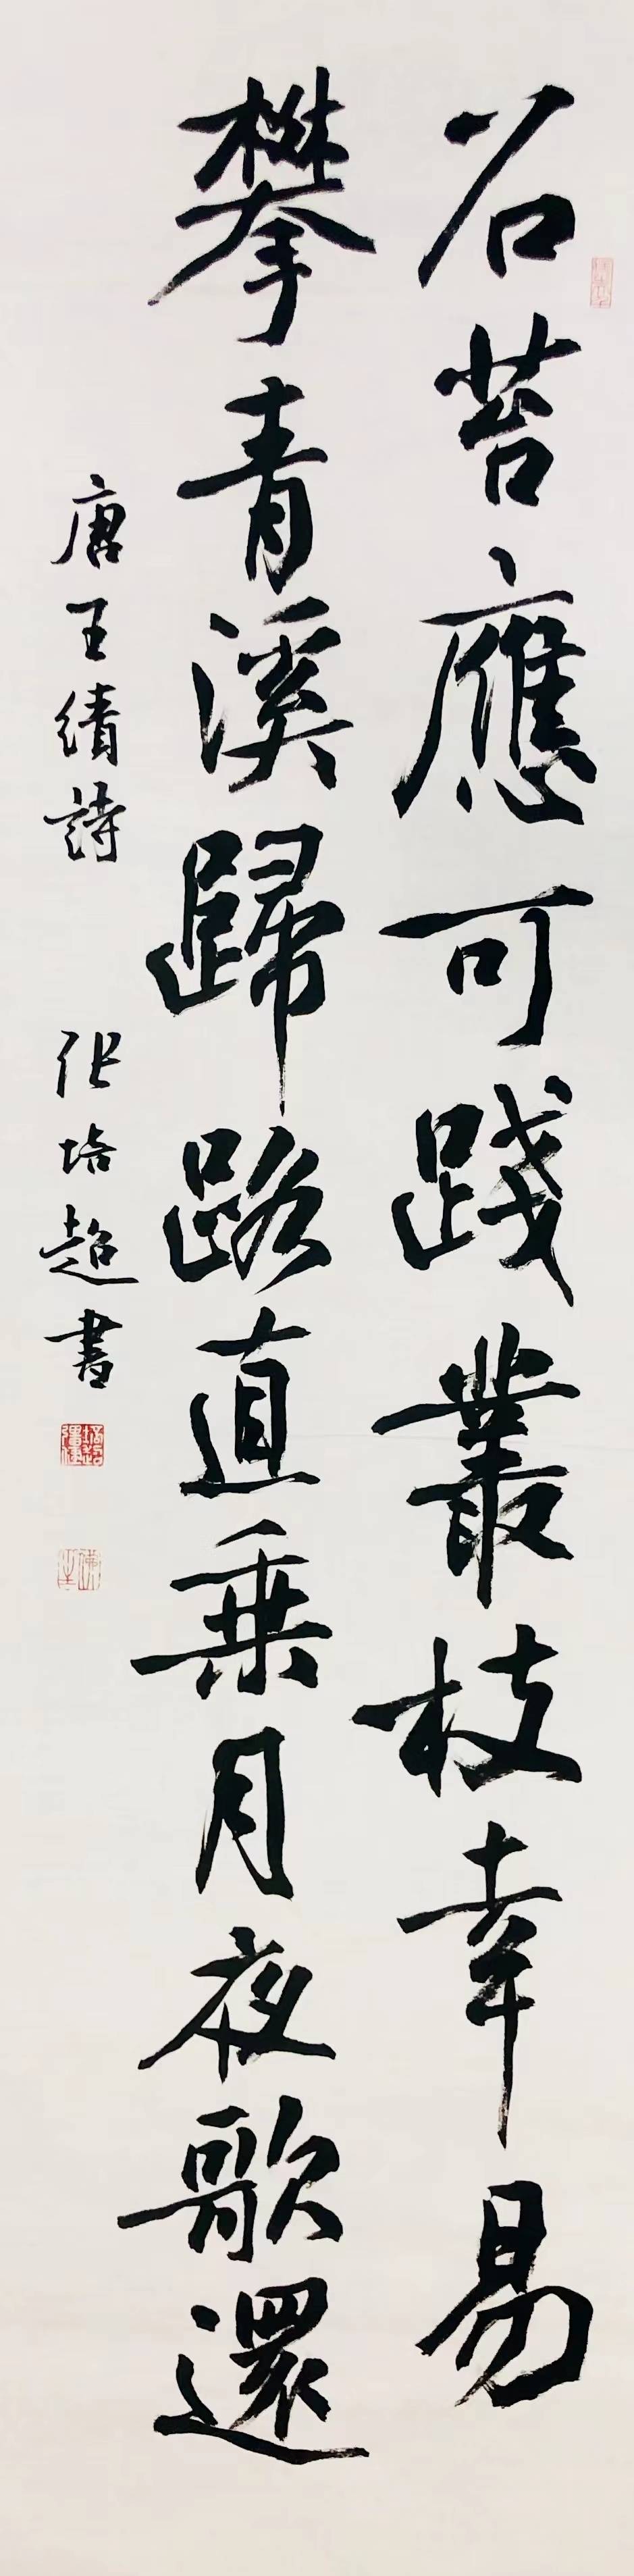 石苔應可踐叢枝幸易
攀青溪歸路直乘月夜歌還
唐王績詩 張培超書